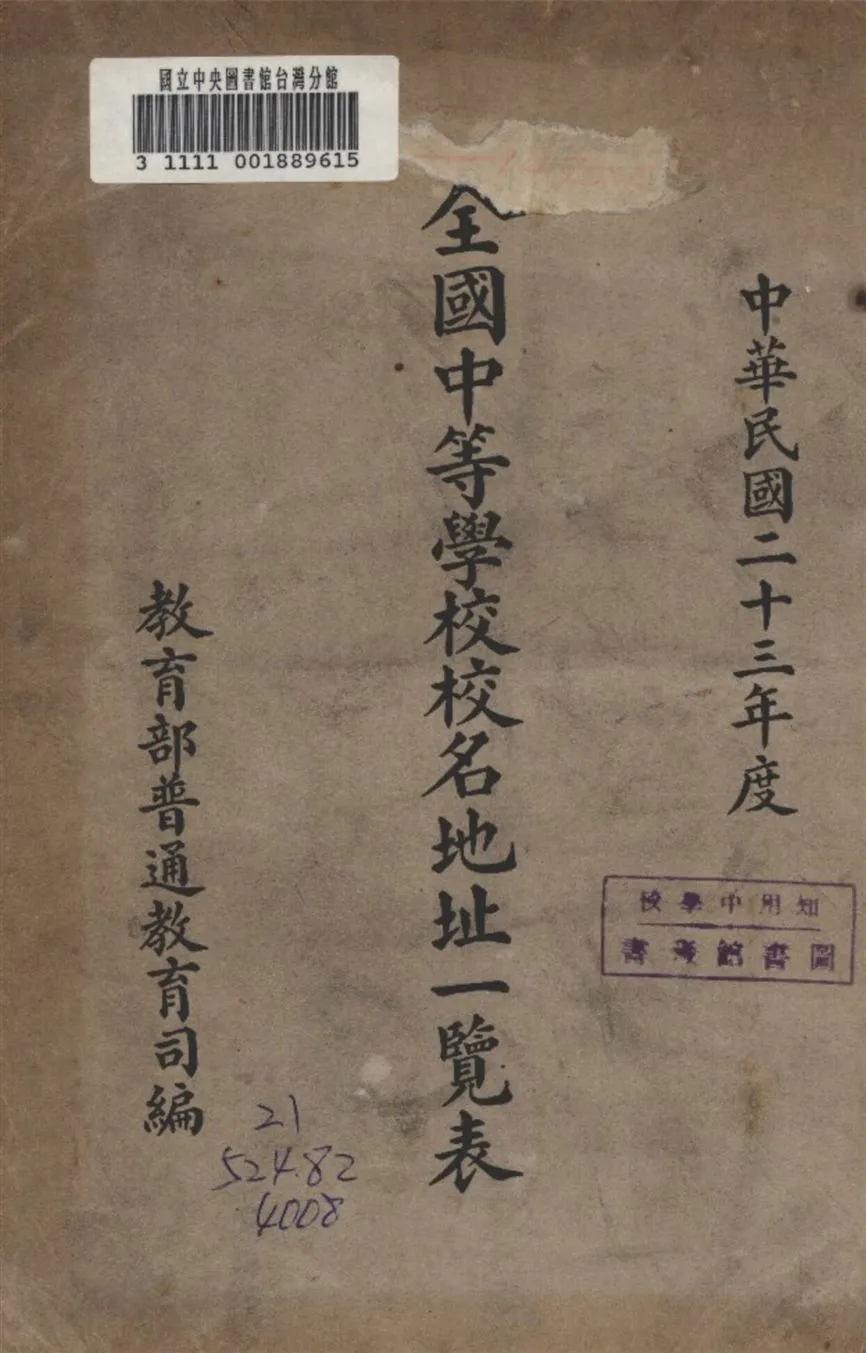 國立中央圖書館台灣分館
3 1111 001889615
中華民國二十三年度
全國中等學校校名地址一覽表
教育部普通教育司編
知用中學校
圖書館藏書
21
524.82
4008